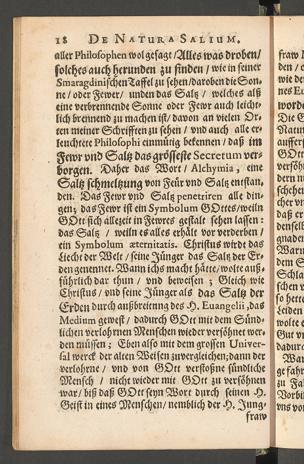 18 DE NATURA SALIUM.
aller Philosophen wol gesagt / Alles was droben /
solches auch herunden zu finden / wie in seiner
Smaragdinischen Taffel zu sehen / daroben die Son-
ne / oder Fewer / unden das Saltz / welches alß
eine verbrennende Sonne oder Fewr auch leicht-
lich brennend zu machen ist / davon an vielen Or-
ten meiner Schrifften zu sehen / vnd auch alle er-
leuchtete Philosophi einmütig bekennen / daß im
Fewr vnd Saltz das grösseste Secretum ver-
borgen. Daher das Wort / Alchymia, eine
Saltz schmeltzung von Feür vnd Saltz enstan-
den. Das Fewr vnd Saltz penetriren alle din-
gen; das Fewr ist ein Symbolum GOttes / weiln
GOtt sich allezeit in Fewres gestalt sehen lassen:
das Saltz / weiln es alles erhält vor verderben /
ein Symbolum æternitatis. Christus wirdt das
Liecht der Welt / seine Jünger das Saltz der Er-
den genennet. Wann ichs macht hätte / wolte auß-
führlich dar thun / und beweisen; Gleich wie
Christus / und seine Jünger als das Saltz der
Erden durch außbreitung des H. Euangelii, das
Medium gewest / dadurch GOtt mit dem Sünd-
lichen verlohrnen Menschen wieder versöhnet wer-
den müssen; Eben also mit dem grossen Univer-
sal werck der alten Weisen zuvergleichen; dann der
verlohrne / und von GOtt verstoßne sündliche
Mensch / nicht wieder mit GOtt zu versöhnen
war / biß daß GOtt seyn Wort durch seinen H.
Geist in eines Menschen / nemblich der H. Jung-
fraw